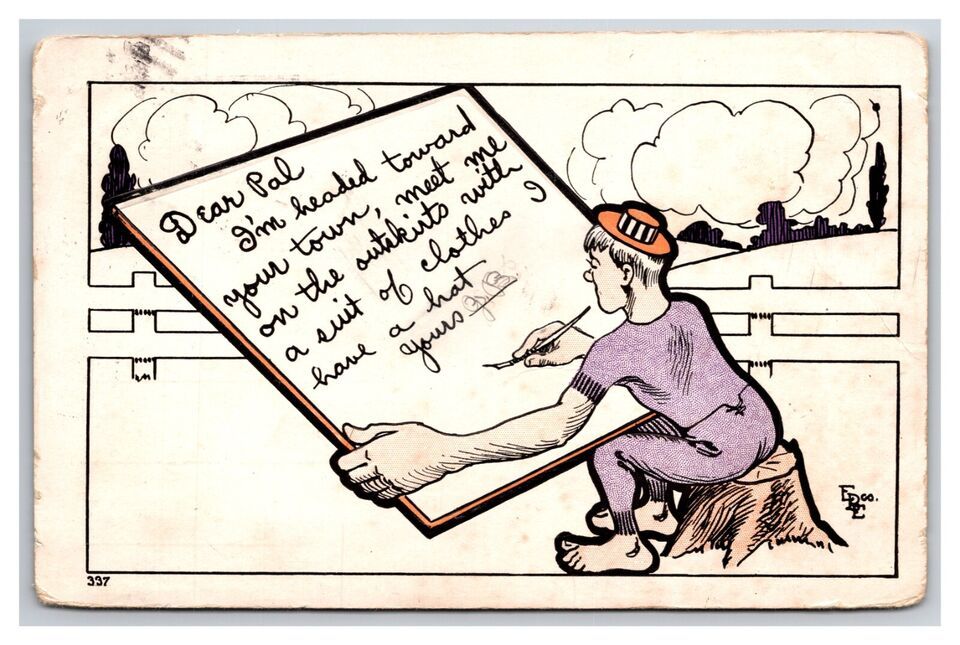 Dear Pal
I'm headed toward
your town, meet me
on the outskirts with
a suit of clothes I
have a hat
yours
337